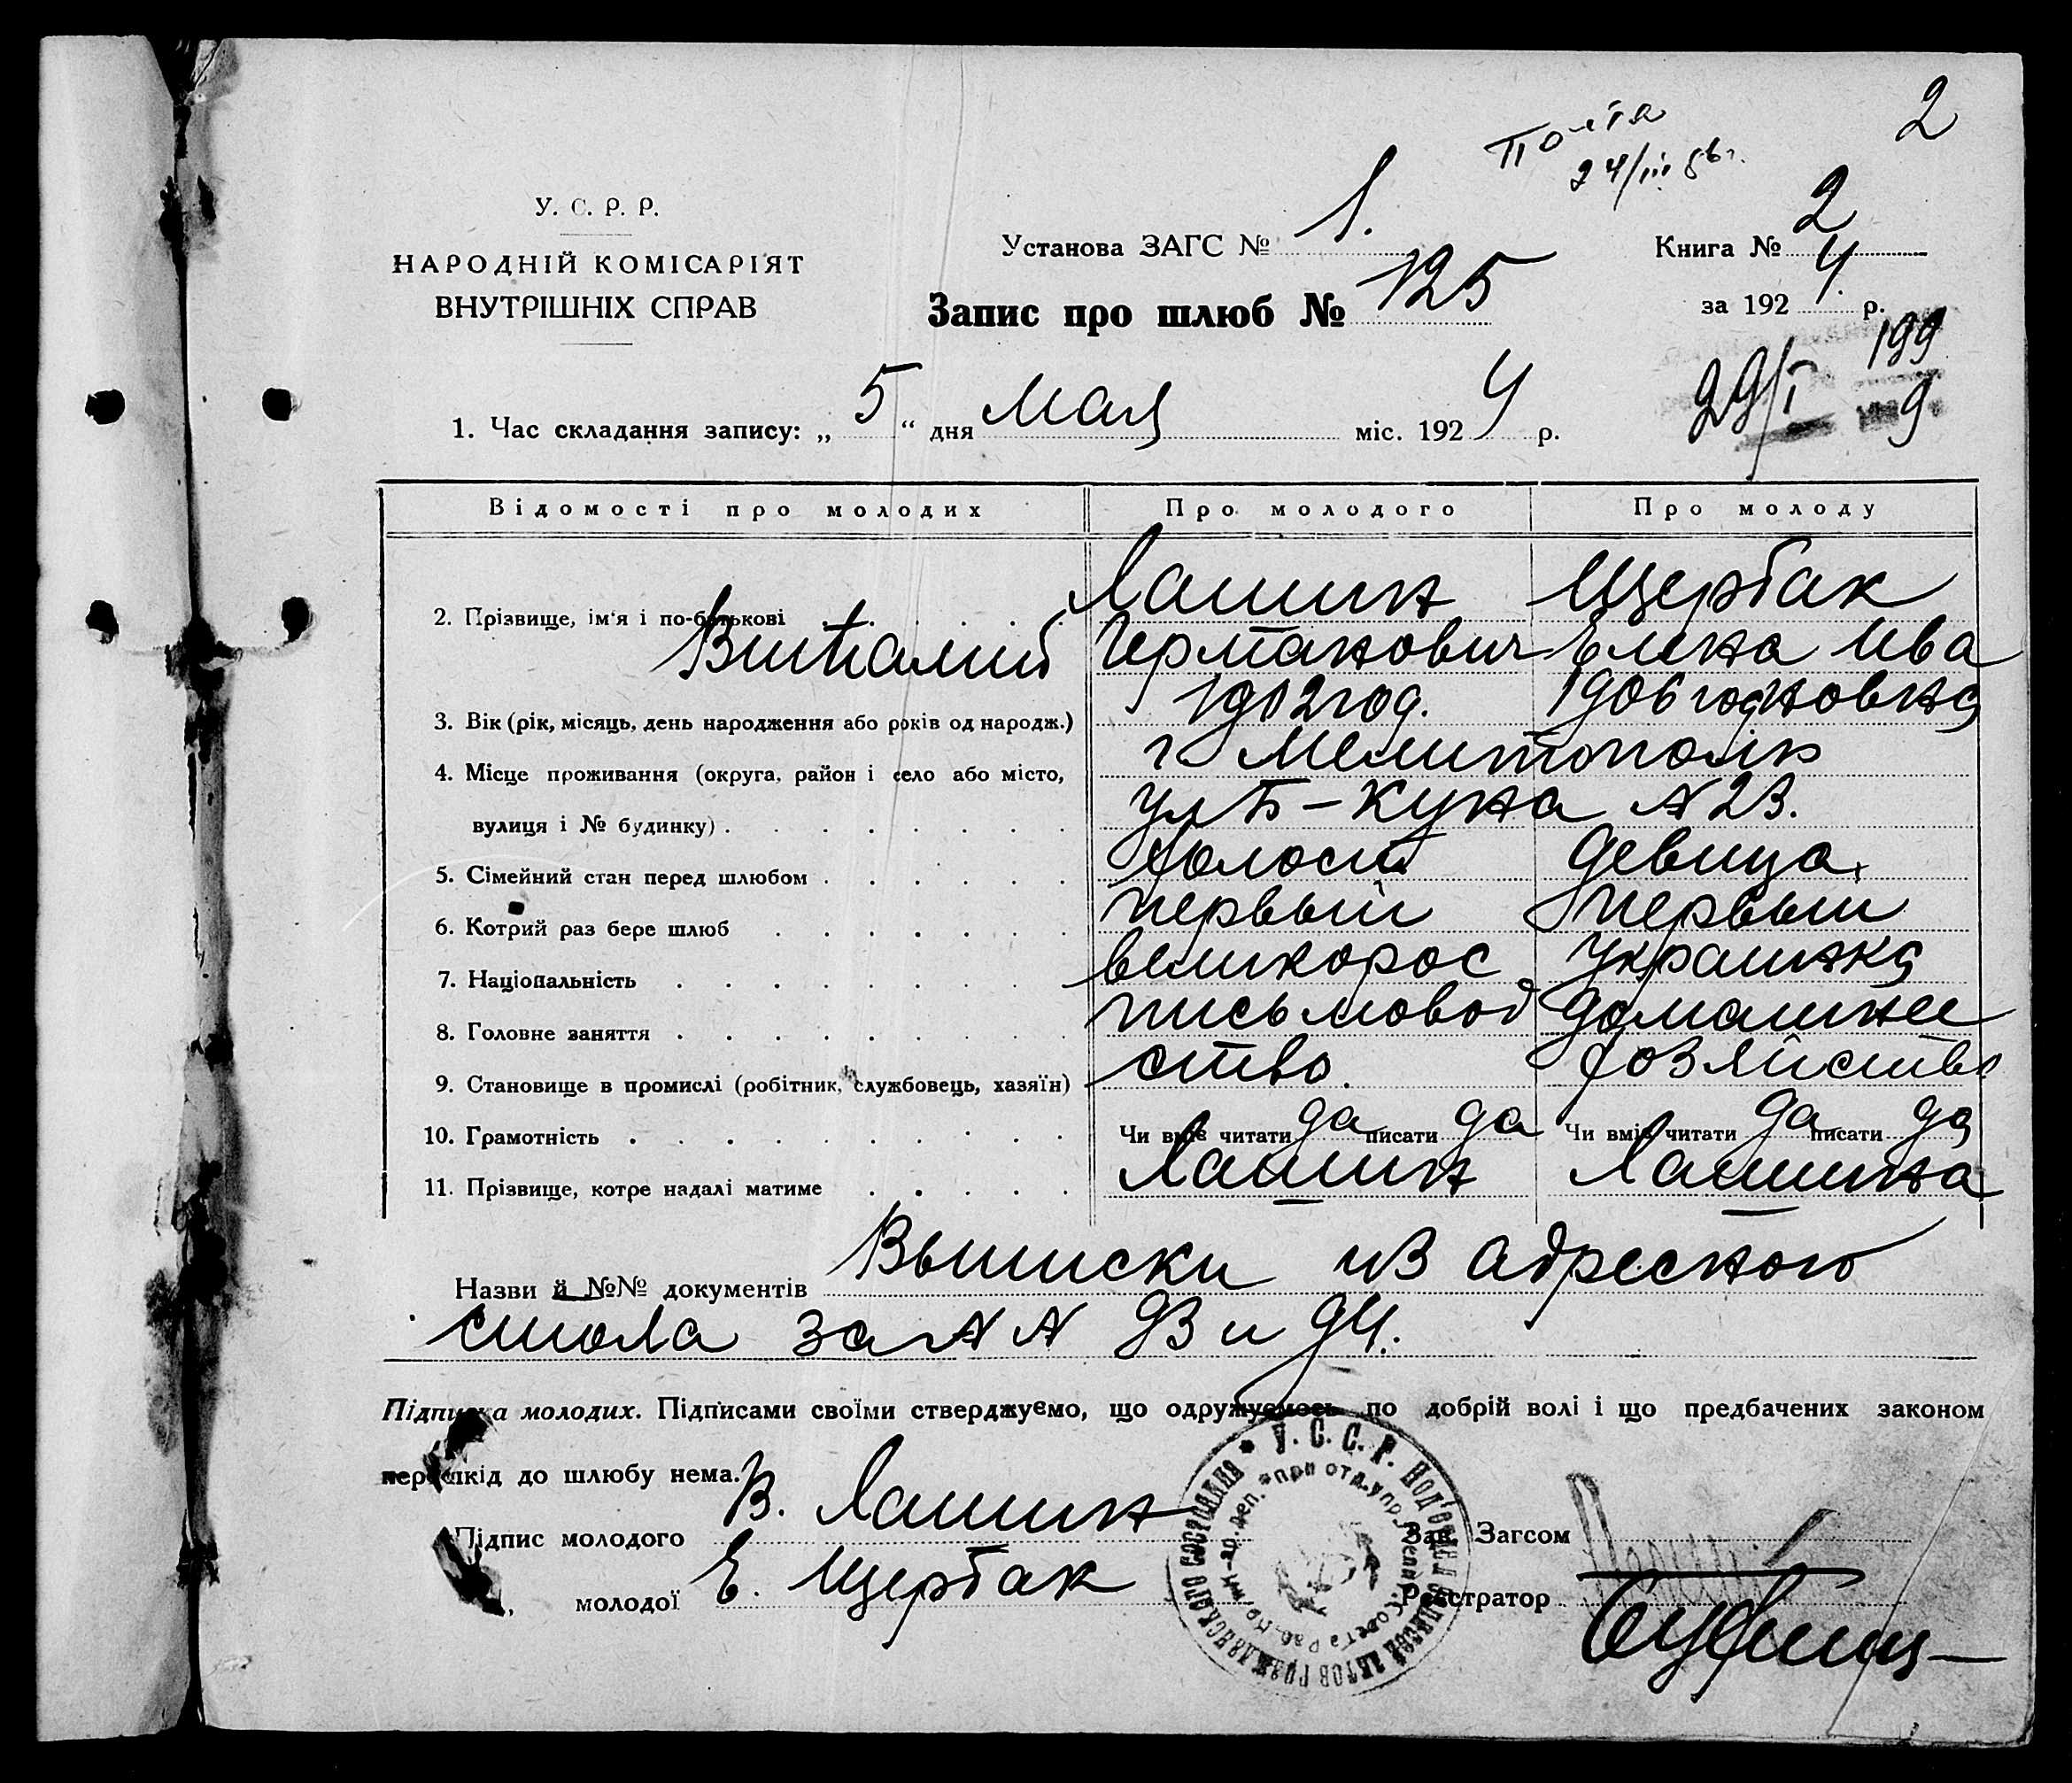 2
Почта
24/III 86г.
У. С. Р. Р.
НАРОДНІЙ КОМІСАРІЯТ
ВНУТРІШНІХ СПРАВ
Установа ЗАГС № 1.
Книга № 2
Запис про шлюб № 125
за 1924 р.
29/I 199
9
1. Час складання запису: „5“ дня Мая міс. 1924 р.
Відомості про молодих Про молодого Про молоду
2. Прізвище, ім'я і по-батькові Лашин Щербак
Виталий Германович Елена Ива
новна
3. Вік (рік, місяць, день народження або років од народж.) 1902 год. 1906 год
4. Місце проживання (округа, район і село або місто, г. Мелитополь
вулиця і № будинку) ул Б-Куна № 23.
5. Сімейний стан перед шлюбом холост девица.
6. Котрий раз бере шлюб первый первый
7. Національність великорос украинка
8. Головне заняття письмовод домашнее
9. Становище в промислі (робітник, службовець, хазяїн) ство. хозяйство
10. Грамотність Чи вміє читати да писати да Чи вміє читати да писати да
11. Прізвище, котре надалі матиме Лашин Лашина
Назви й №№ документів Выписки из адресного
стола за № № 93 и 94.
Підписка молодих. Підписами своїми стверджуємо, що одружуємось по добрій волі і що предбачених законом
перешкід до шлюбу нема.
Підпис молодого В. Лашин
Зав. Загсом
„ молодої Е. Щербак
Реєстратор
У. С. С. Р. Под'отдел записей актов гражданского состояния
при отд. управлении Совета Раб.
деп.